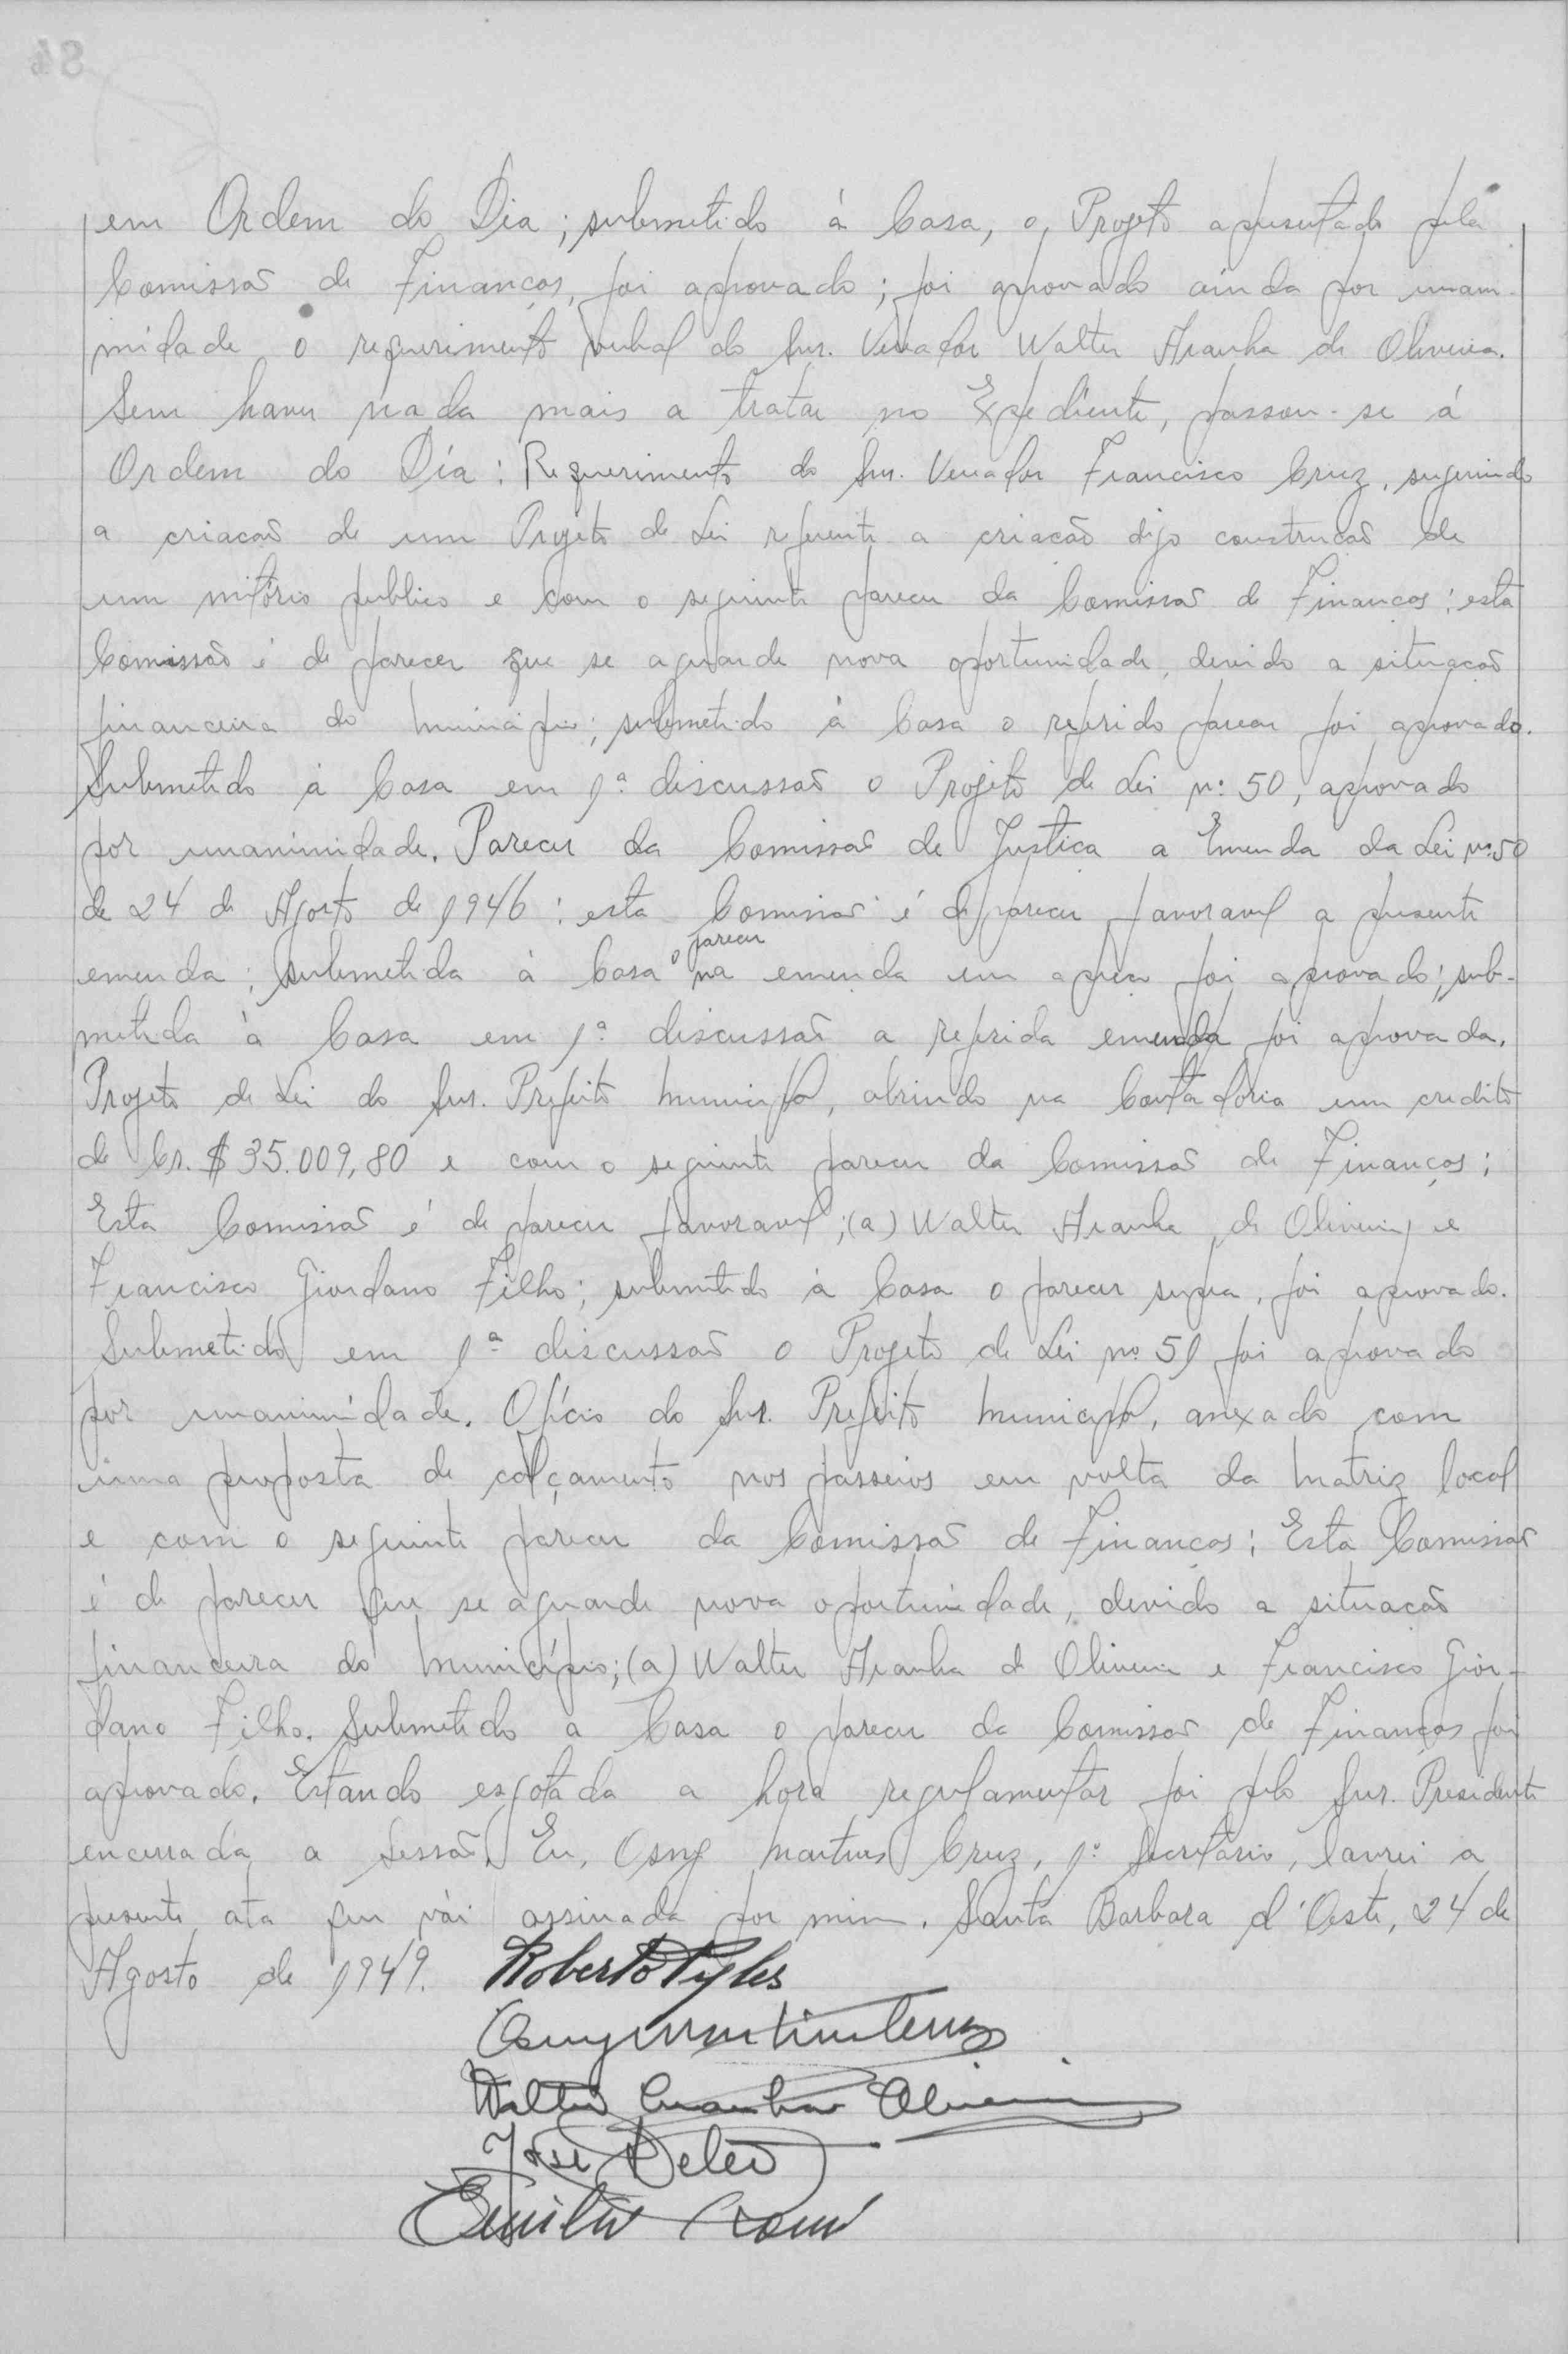 em Ordem do Dia; submetido á Casa, o Projeto apresentado pela
Comissão de Finanças, foi aprovado; foi aprovado ainda por unani-
midade o requerimento verbal do Snr. Vereador Walter Aranha de Oliveira.
Sem haver nada mais a tratar no Expediente, passou-se á
Ordem do Dia: Requerimento do Snr. Vereador Francisco Cruz, sugerindo
a criacão de um Projeto de Lei referente a criacão digo construcão de
um mitório publico e com o seguinte parecer da Comissão de Financas: esta
Comissão é de parecer que se aguarde nova oportunidade, devido a situacão
financeira do Municipio; submetido á Casa o referido parecer foi aprovado.
Submetido á Casa em 1ª discussão o Projeto de Lei nº 50, aprovado
por unanimidade. Parecer da Comissão de Justica a Emenda da Lei nº 50
de 24 de Agosto de 1946: esta Comissão é de parecer favoravel a presente
emenda; submetida á Casa o parecer na emenda em apreco foi aprovado; sub-
metida á Casa em 1ª discussão a referida emenda foi aprovada.
Projeto de Lei do Snr. Prefeito Municipal, abrindo na Contadoria um credito
de Cr. $ 35.009,80 e com o seguinte parecer da Comissão de Finanças:
Esta Comissão é de parecer favoravel; (a) Walter Aranha de Oliveira e
Francisco Giordano Filho; submetido á Casa o parecer supra, foi aprovado.
Submetido em 1ª discussão o Projeto de Lei nº 51 foi aprovado
por unanimidade. Ofício do Snr. Prefeito Municipal, anexado com
uma proposta de calçamento nos passeios em volta da Matriz local
e com o seguinte parecer da Comissão de Finanças: Esta Comissão
é de parecer que se aguarde nova oportunidade, devido a situacão
financeira do Município; (a) Walter Aranha de Oliveira e Francisco Gior-
dano Filho. Submetido a Casa o parecer da Comissão de Finanças foi
aprovado. Estando esgotada a hora regulamentar foi pelo Snr. Presidente
encerrada a Sessão. Eu, Osny Martins Cruz, 1º Secretário, lavrei a
presente ata que vai assinada por mim. Santa Barbara d'Oeste, 24 de
Agosto de 1949. Roberto Pyles
Osny Martins Cruz
Walter Aranha Oliveira
José Deleo
Emilio Romi